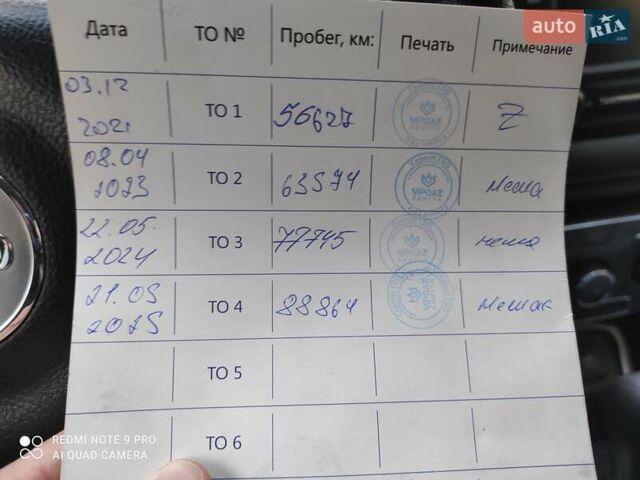 auto RIA.com
Дата ТО № Пробег, км: Печать Примечание
03.12
2021 ТО 1 56627 VIPGAZ Z
08.04
2023 ТО 2 63574 VIPGAZ
22.05.
2024 ТО 3 77745 VIPGAZ
21.05
2025 ТО 4 88864 VIPGAZ
ТО 5
ТО 6
REDMI NOTE 9 PRO
AI QUAD CAMERA